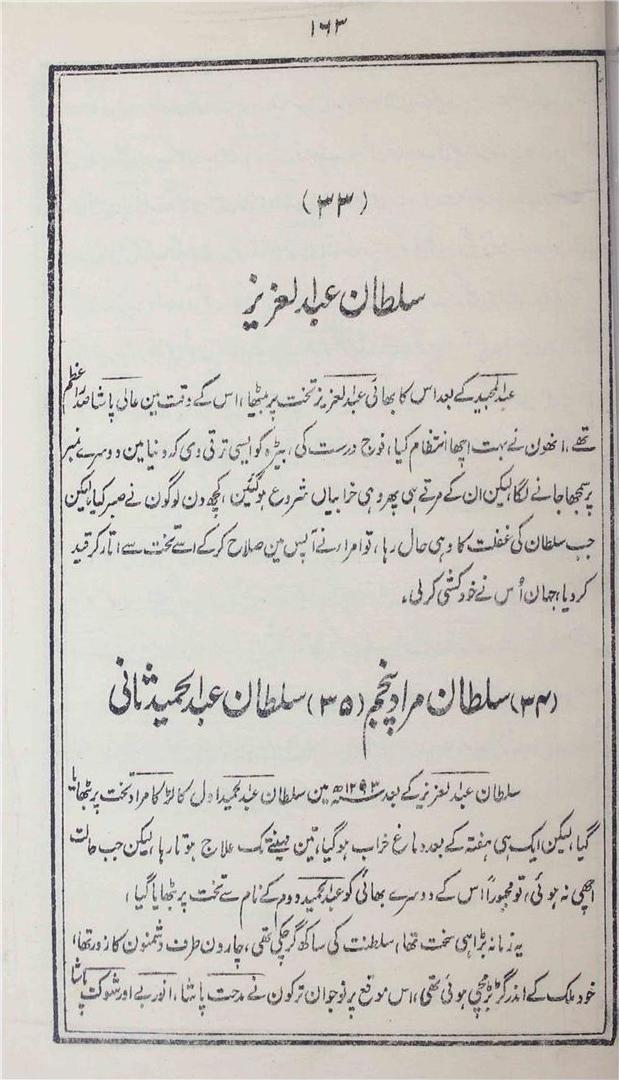 ۱۶۳
(۳۳)
سلطان عبدالعزیز
عبدالمجید کے بعد اس کا بھائی عبدالعزیز تخت پر بیٹھا، اس کے وقت مین عالی پاشا صدر اعظم
تھے، انھون نے بہت اچھا انتظام کیا، فوج درست کی، بیڑہ کو ایسی ترقی دی کہ دنیا مین دوسرے نمبر
پر سمجھا جانے لگا، لیکن ان کے مرتے ہی پھر وہی خرابیاں شروع ہوگئین، کچھ دن لوگون نے صبر کیا، لیکن
جب سلطان کی غفلت کا وہی حال رہا، تو امراء نے آپس مین صلاح کرکے اسے تخت سے اتار کر قید
کر دیا، جہان اُس نے خودکشی کرلی،
(۳۴) سلطان مراد پنجم (۳۵) سلطان عبدالحمید ثانی
سلطان عبدالعزیز کے بعد ۱۲۹۳ھ مین سلطان عبدالحمید اول کا لڑکا مراد تخت پر بٹھایا
گیا، لیکن ایک ہی ہفتہ کے بعد دماغ خراب ہوگیا، تین مہینے تک علاج ہوتا رہا، لیکن جب حالت
اچھی نہ ہوئی، تو مجبوراً اس کے دوسرے بھائی کو عبدالحمید دوم کے نام سے تخت پر بٹھایا گیا،
یہ زمانہ بڑا ہی سخت تھا، سلطنت کی ساکھ گر چکی تھی، چارون طرف دشمنون کا زور تھا،
خود ملک کے اندر گڑبڑ مچی ہوئی تھی، اس موقع پر نوجوان ترکون نے مدحت پاشا، انور بے اور شوکت پاشا